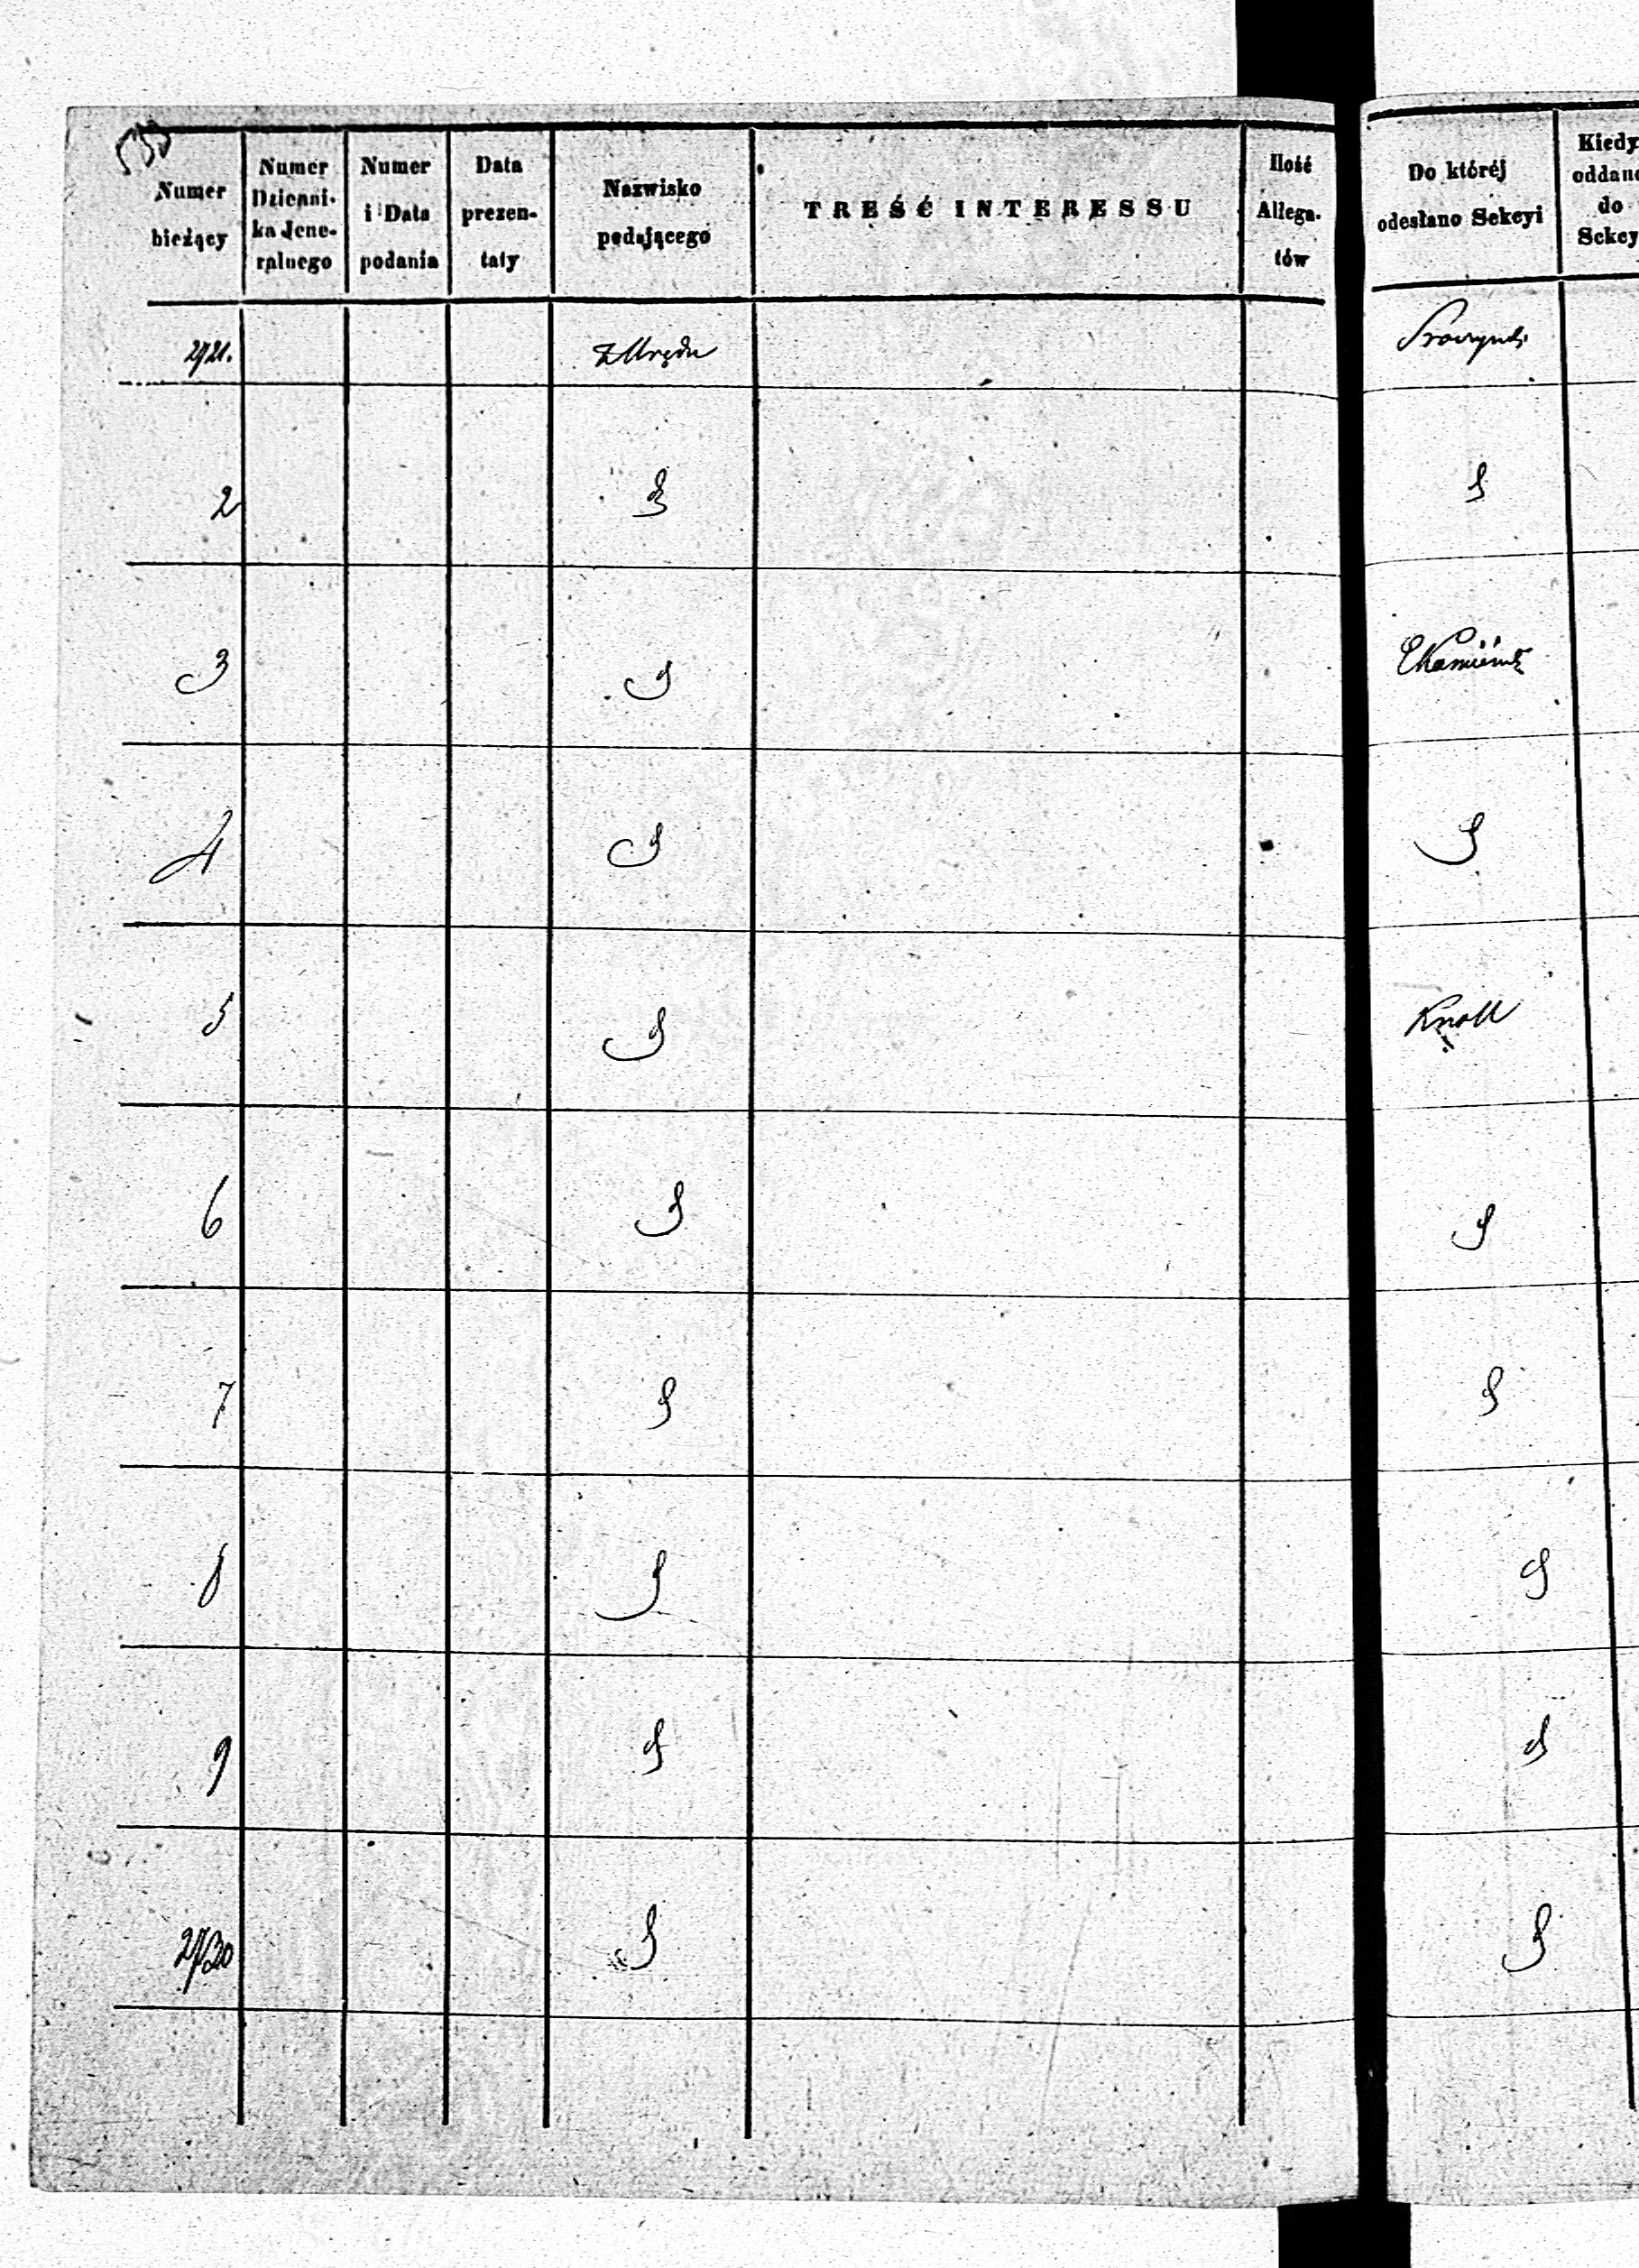 Numer bieżący
Numer Dzienni-ka Jene-ralnego
Numer i Data podania
Data prezen-taty
Nazwisko podającego
TREŚĆ INTERESSU
Ilość Allega-tów
Do któréj odesłano Sekcyi
Kiedy oddano do Sekcy
2721. z Urzędu
2
3
4
5 Knoll
6
7
8
9
2730